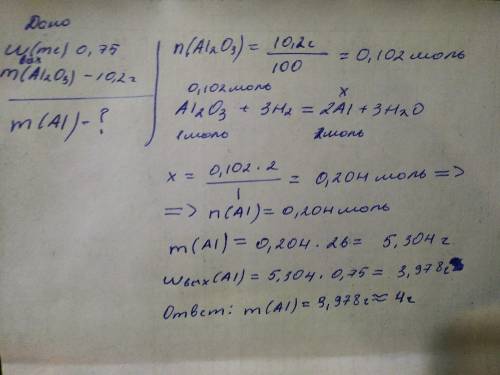 Дано
w вых (тс) 0,75
m(Al₂O₃) - 10,2г
m(Al) - ?
n(Al₂O₃) = 10,2г / 100 = 0,102 моль
0,102 моль x
Al₂O₃ + 3H₂ = 2Al + 3H₂O
1 моль 2 моль
x = 0,102 · 2 / 1 = 0,204 моль =>
=> n(Al) = 0,204 моль
m(Al) = 0,204 · 26 = 5,304 г
wвых(Al) = 5,304 · 0,75 = 3,978г
Ответ: m(Al) = 3,978г ≈ 4г